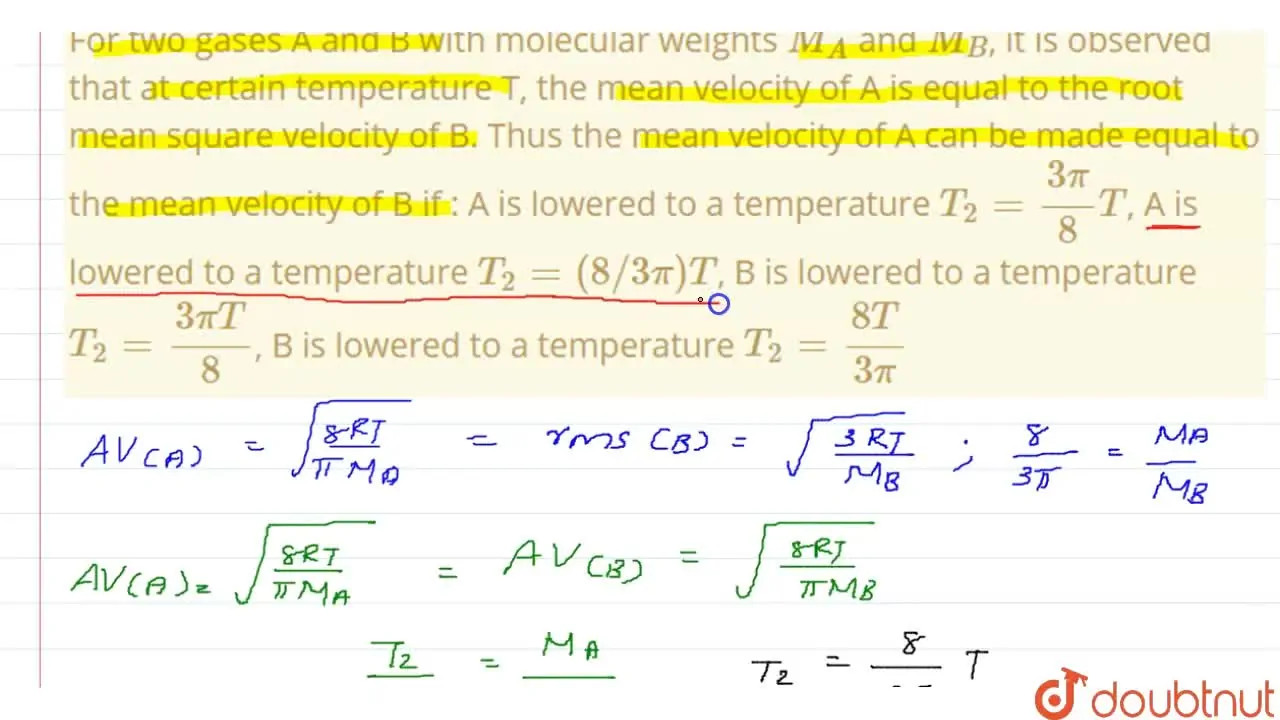 For two gases A and B with molecular weights M_A and M_B, it is observed
that at certain temperature T, the mean velocity of A is equal to the root
mean square velocity of B. Thus the mean velocity of A can be made equal to
the mean velocity of B if : A is lowered to a temperature T_2 = \frac{3π}{8}T, A is
lowered to a temperature T_2 = (8/3π)T, B is lowered to a temperature
T_2 = \frac{3πT}{8}, B is lowered to a temperature T_2 = \frac{8T}{3π}
AV(A) = √(8RT/πM_A) = rms (B) = √(3RT/M_B) ; 8/3π = MA/MB
AV(A) = √(8RT/πM_A) = AV(B) = √(8RT/πMB)
T2 = MA T2 = 8 T
doubtnut